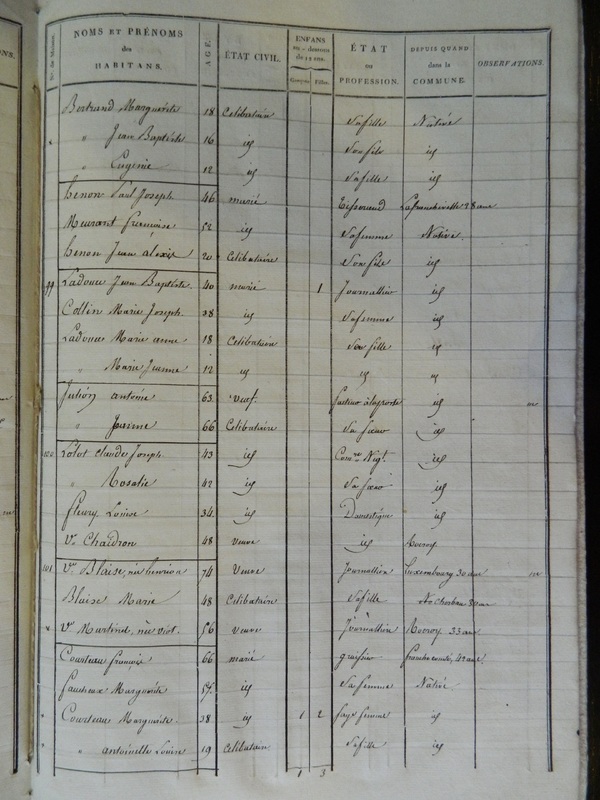 Nos. de Maisons. NOMS ET PRÉNOMS des HABITANS. AGE. ÉTAT CIVIL. ENFANS au-dessous de 12 ans. Garçons. Filles. ÉTAT ou PROFESSION. DEPUIS QUAND dans la COMMUNE. OBSERVATIONS.
Bertrand Marguerite 18 Celibataire Sa fille Native
" Jean Baptiste 16 id Son fils id
" Eugenie 12 id Sa fille id
henon Paul Joseph 46 marié Tisserand Lafrancheville 28 ans
Meurant francoise 52 id Sa femme Native
henon Jean alexis 20 Celibataire Son fils id
99 Ladouce Jean Baptiste 40 marié 1 Journallier id
Collin Marie Joseph 38 id Sa femme id
Ladouce Marie anne 18 Celibataire Sa fille id
" Marie Jeanne 12 id id id
Julion antoine 63 Veuf. facteur à la poste id
" Jeanne 66 Celibataire Sa soeur id
100 Lolot Claude Joseph 43 id id
" Rosalie 42 id Sa soeur id
fleury Louise 34 id Domestique id
Ve. Chaudron 48 Veuve id Rocroy
101 Ve. Blaise, née henrion 74 Veuve Journallier Luxembourg 30 ans
Blaise Marie 48 Celibataire Sa fille
Ve. Martinet, née viot. 56 Veuve Journallier Rocroy 33 ans
Courteau françois 66 marié franche comté, 42 ans
faucheux Marguerite 57 id Sa femme Native
Courteau Marguerite 38 id 1 2 Sage femme id
" antoinette Louise 19 Celibataire Sa fille id
1 3